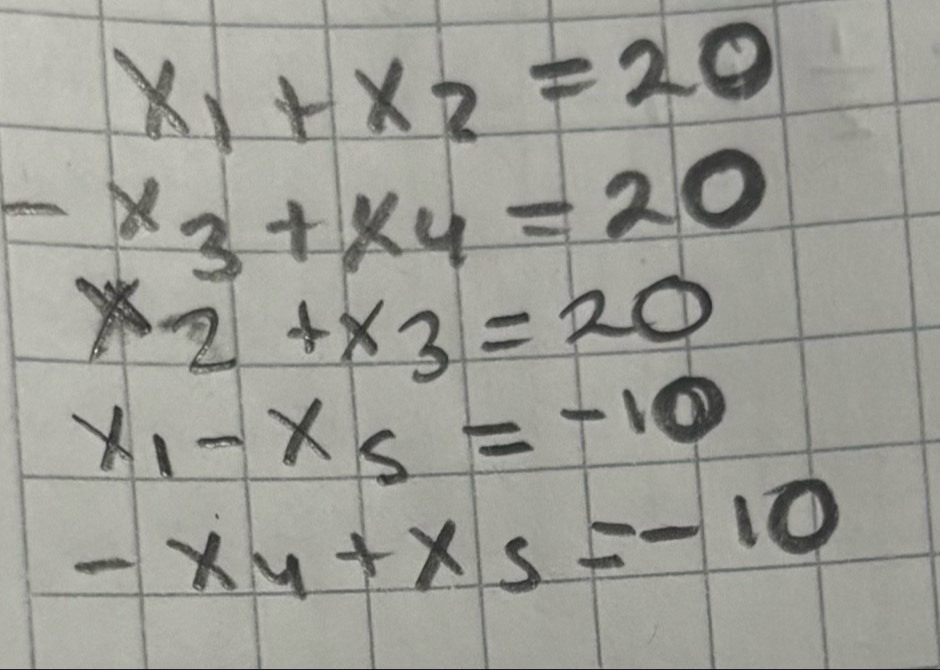 x₁ + x₂ = 20
- x₃ + x₄ = 20
x₂ + x₃ = 20
x₁ - x₅ = -10
- x₄ + x₅ = - 10